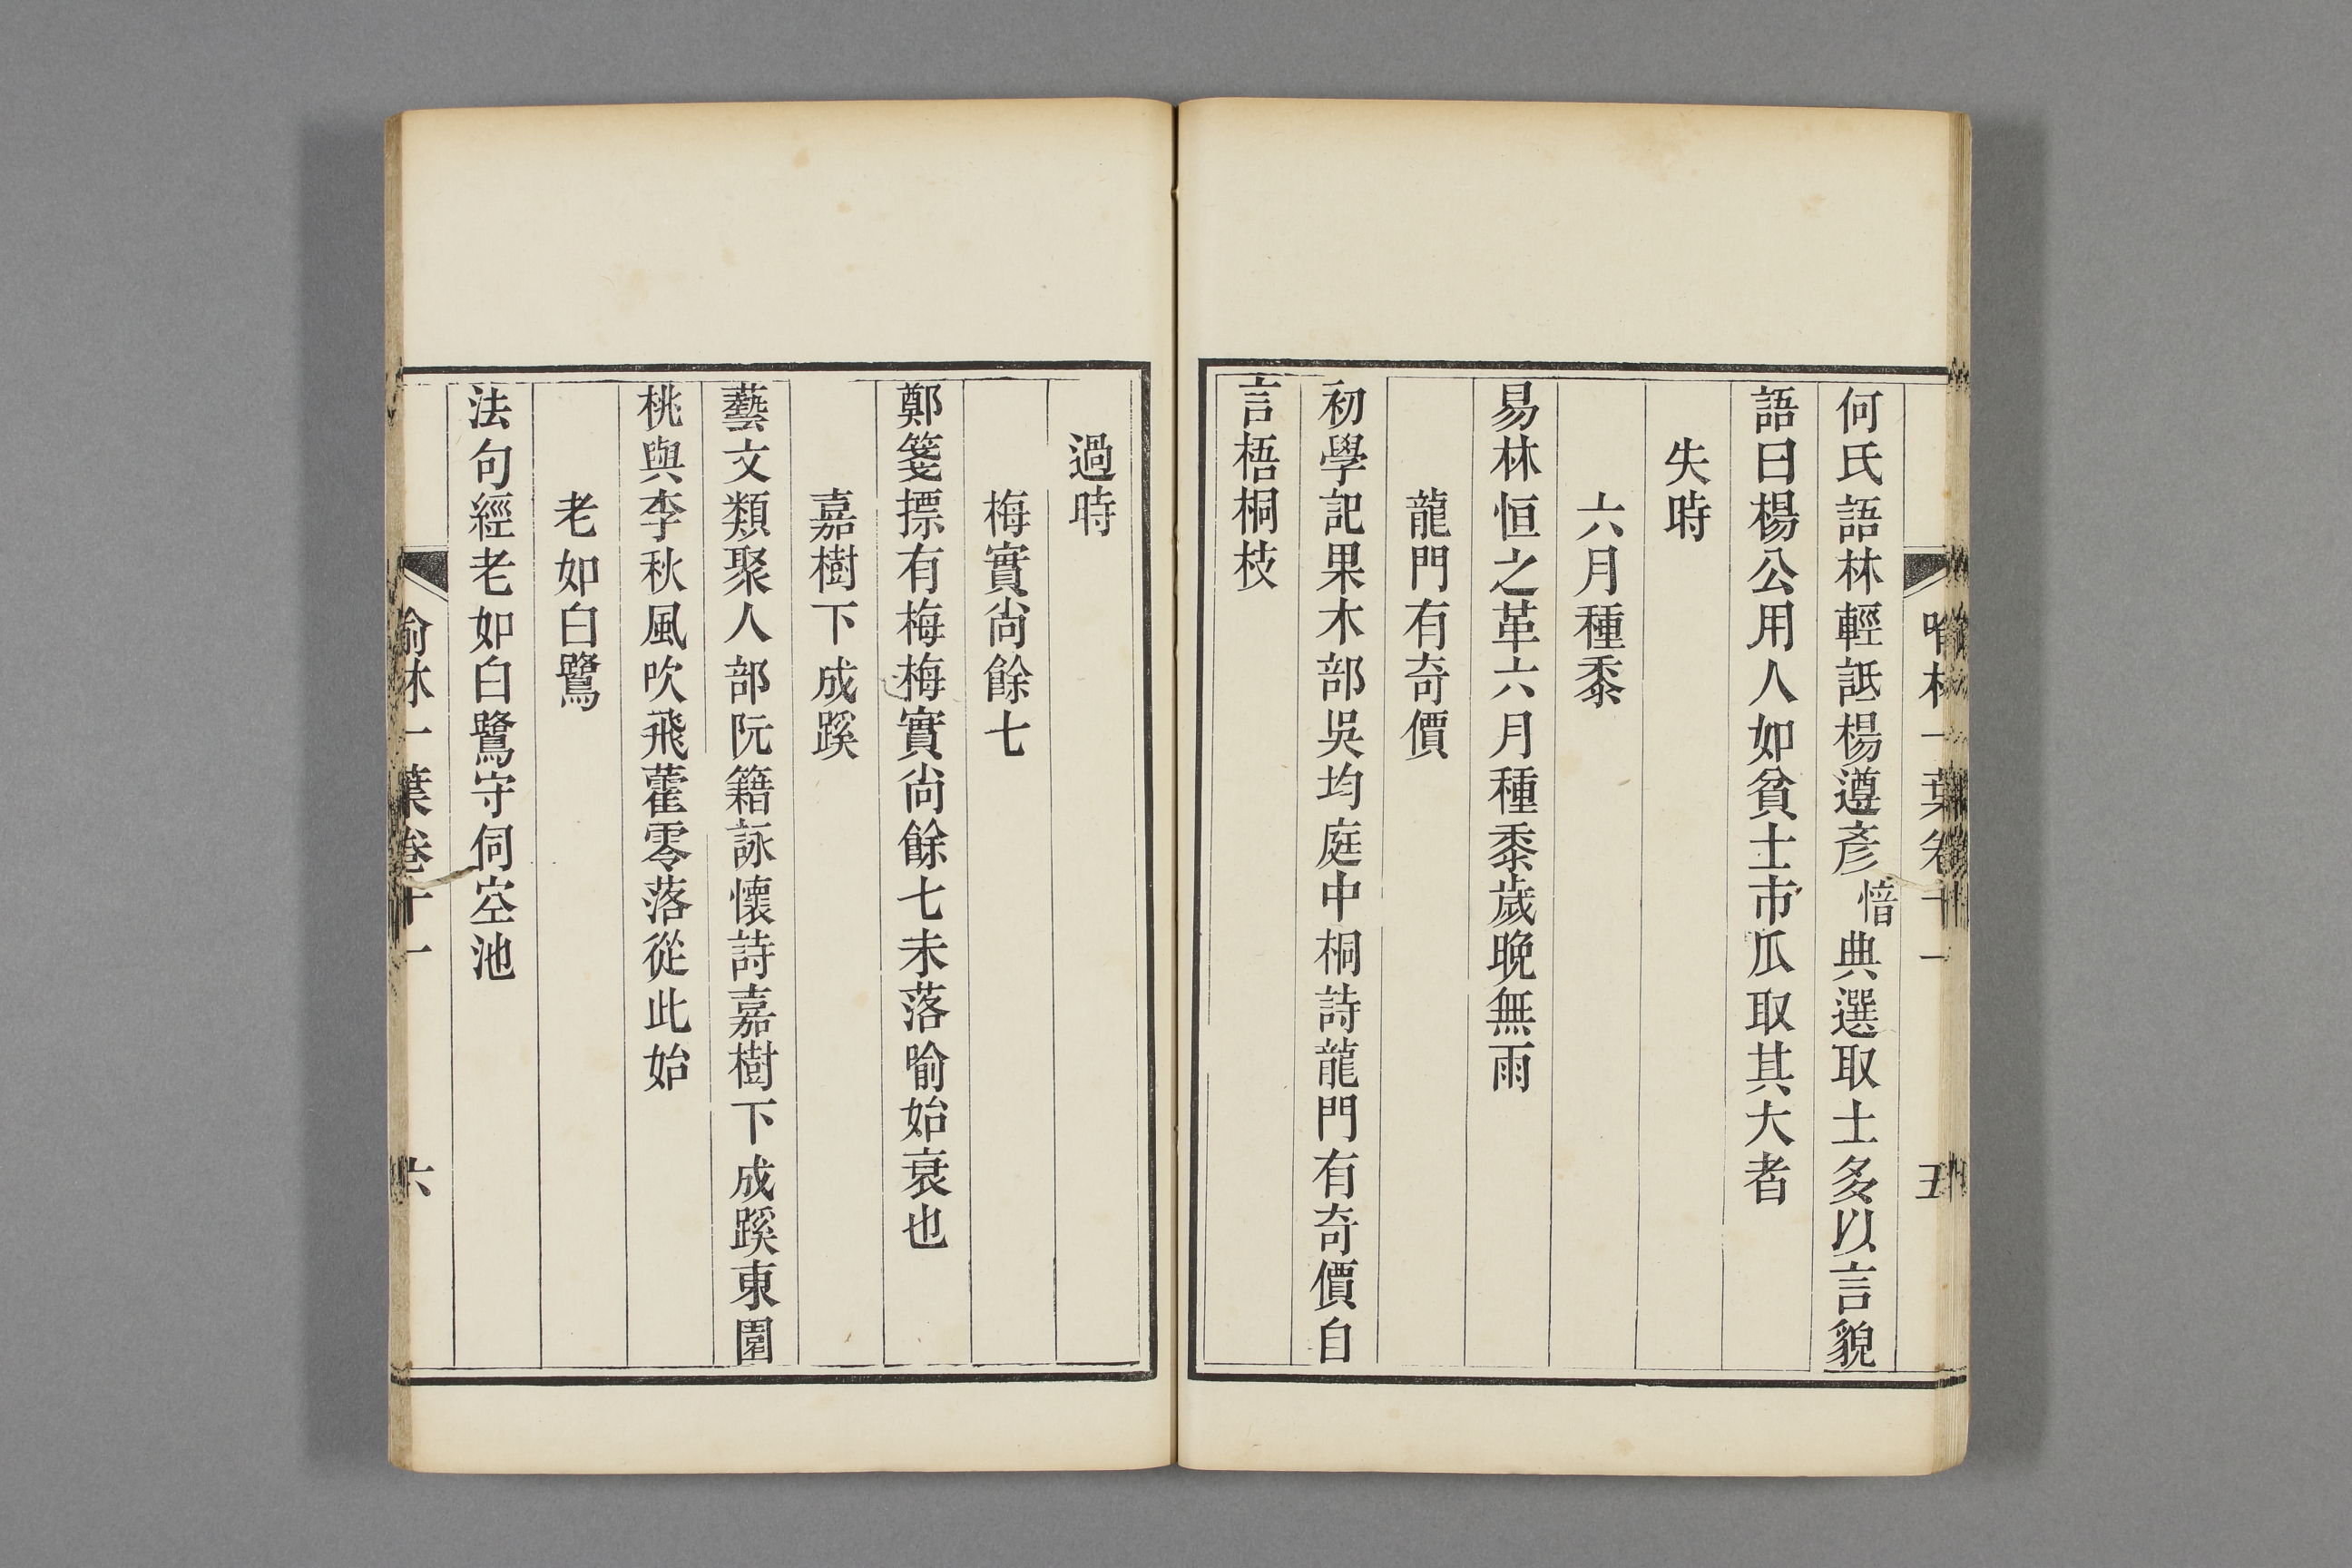 何氏語林輕詆楊遵彥愔典選取士多以言貌
語曰楊公用人如貧士市瓜取其大者
失時
六月種黍
易林恒之革六月種黍歲晚無雨
龍門有奇價
初學記果木部吳均庭中桐詩龍門有奇價自
言梧桐枝
喻林一葉卷十一
五
過時
梅實尙餘七
鄭箋摽有梅梅實尙餘七未落喻始衰也
嘉樹下成蹊
藝文類聚人部阮籍詠懷詩嘉樹下成蹊東園
桃與李秋風吹飛藿零落從此始
老如白鷺
法句經老如白鷺守伺空池
喻林一葉卷十一
六